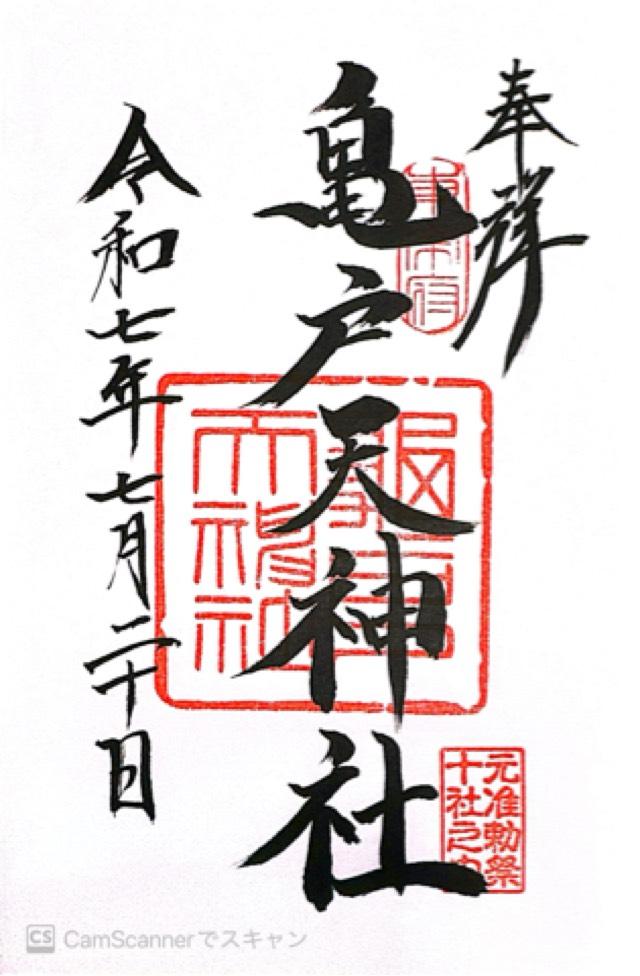 奉拝
亀戸天神社
令和七年七月二十日
元准勅祭
十社之内
CS CamScannerでスキャン